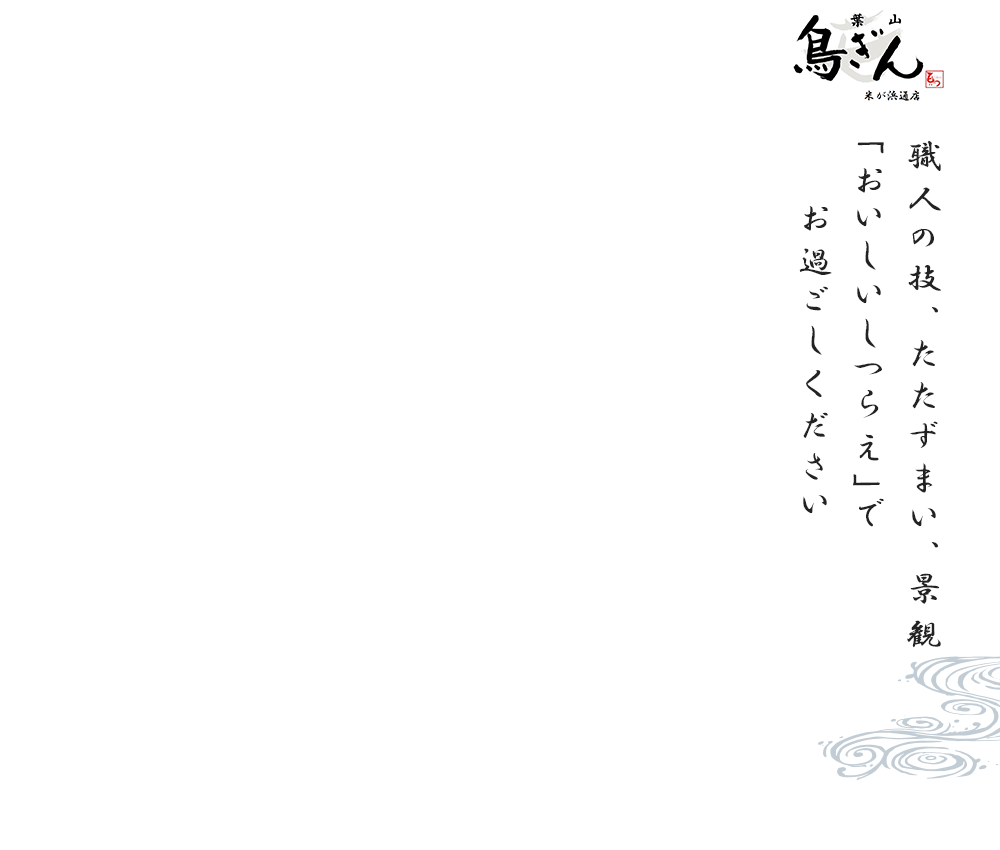 葉山
鳥ぎん
米が浜通店
職人の技、たたずまい、景観
「おいしいしつらえ」で
お過ごしください